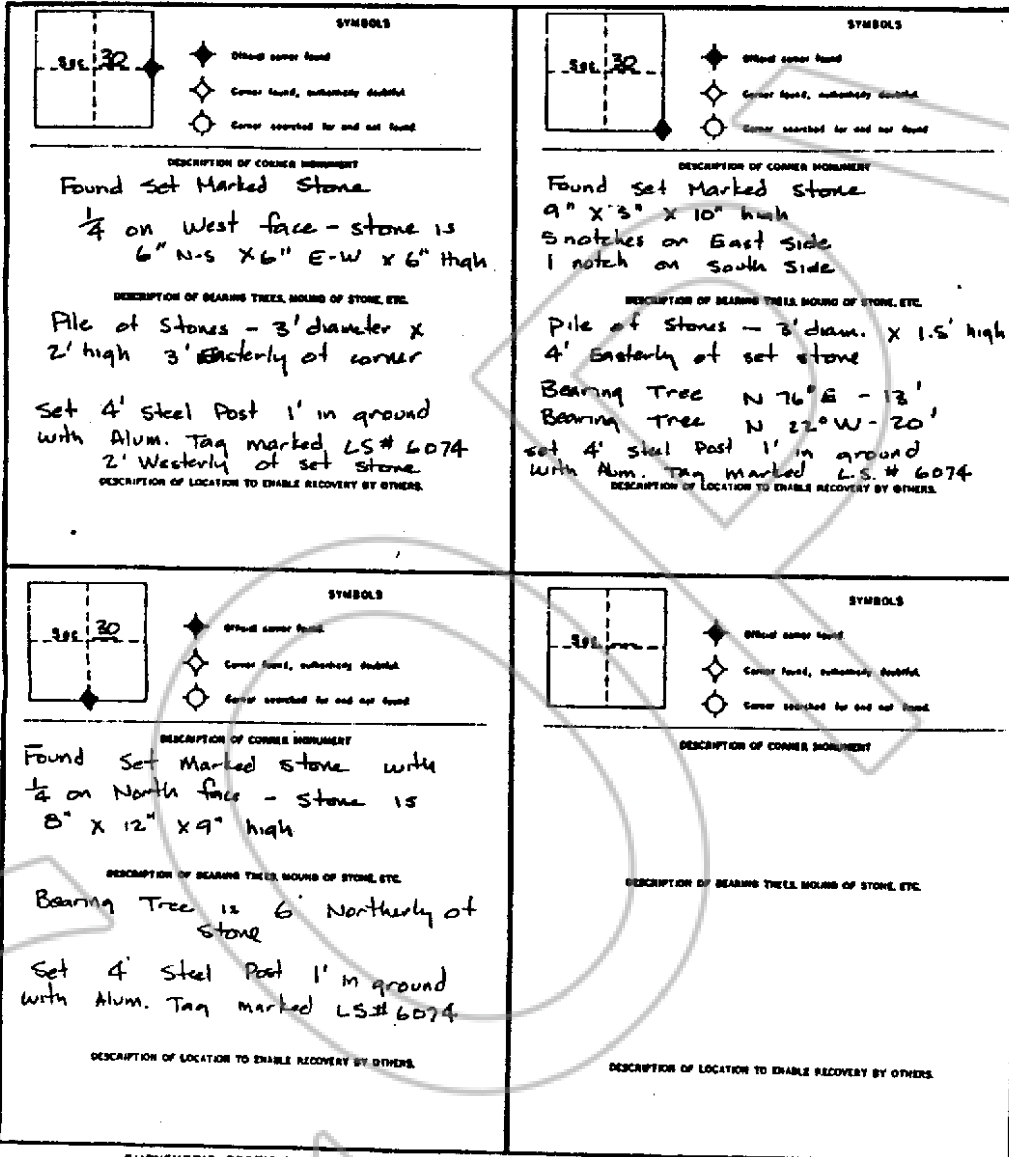 SYMBOLS
Sec 30
Official corner found
Corner found, authenticity doubtful.
Corner searched for and not found
DESCRIPTION OF CORNER MONUMENT
Found Set Marked Stone
1/4 on West face - stone is
6" N-S X 6" E-W x 6" High
DESCRIPTION OF BEARING TREES, MOUND OF STONE, ETC.
Pile of Stones - 3' diameter x
2' high 3' Easterly of corner
Set 4' Steel Post 1' in ground
with Alum. Tag marked LS# 6074
2' Westerly of set stone
DESCRIPTION OF LOCATION TO ENABLE RECOVERY BY OTHERS.
SYMBOLS
Sec 30
Official corner found
Corner found, authenticity doubtful.
Corner searched for and not found
DESCRIPTION OF CORNER MONUMENT
Found Set Marked Stone
9" X 3" X 10" high
5 notches on East side
1 notch on South Side
DESCRIPTION OF BEARING TREES, MOUND OF STONE, ETC.
Pile of Stones - 3' diam. X 1.5' high
4' Easterly of set stone
Bearing Tree N 76° E - 13'
Bearing Tree N 22° W - 20'
set 4' steel Post 1' in ground
with Alum. Tag marked L.S. # 6074
DESCRIPTION OF LOCATION TO ENABLE RECOVERY BY OTHERS.
SYMBOLS
Sec 30
Official corner found.
Corner found, authenticity doubtful.
Corner searched for and not found
DESCRIPTION OF CORNER MONUMENT
Found Set Marked stone with
1/4 on North face - Stone is
8" X 12" X 9" high
DESCRIPTION OF BEARING TREES, MOUND OF STONE, ETC.
Bearing Tree is 6' Northerly of
Stone
Set 4' Steel Post 1' in ground
with Alum. Tag marked LS# 6074
DESCRIPTION OF LOCATION TO ENABLE RECOVERY BY OTHERS.
SYMBOLS
Sec
Official corner found.
Corner found, authenticity doubtful.
Corner searched for and not found.
DESCRIPTION OF CORNER MONUMENT
DESCRIPTION OF BEARING TREES, MOUND OF STONE, ETC.
DESCRIPTION OF LOCATION TO ENABLE RECOVERY BY OTHERS.